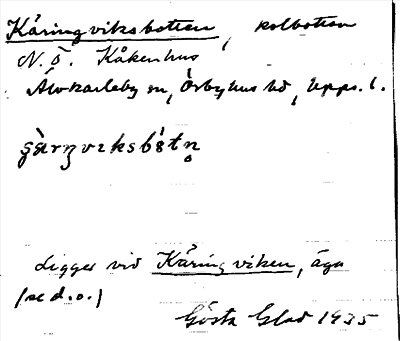 Käringviksbotten, kolbotten
N.Ö. Kåkenhus
Älvkarleby sn, Örbyhus hd, Upps. l.
Ligger vid Käringviken, äga
(se d.o.)
Gösta Glad 1935